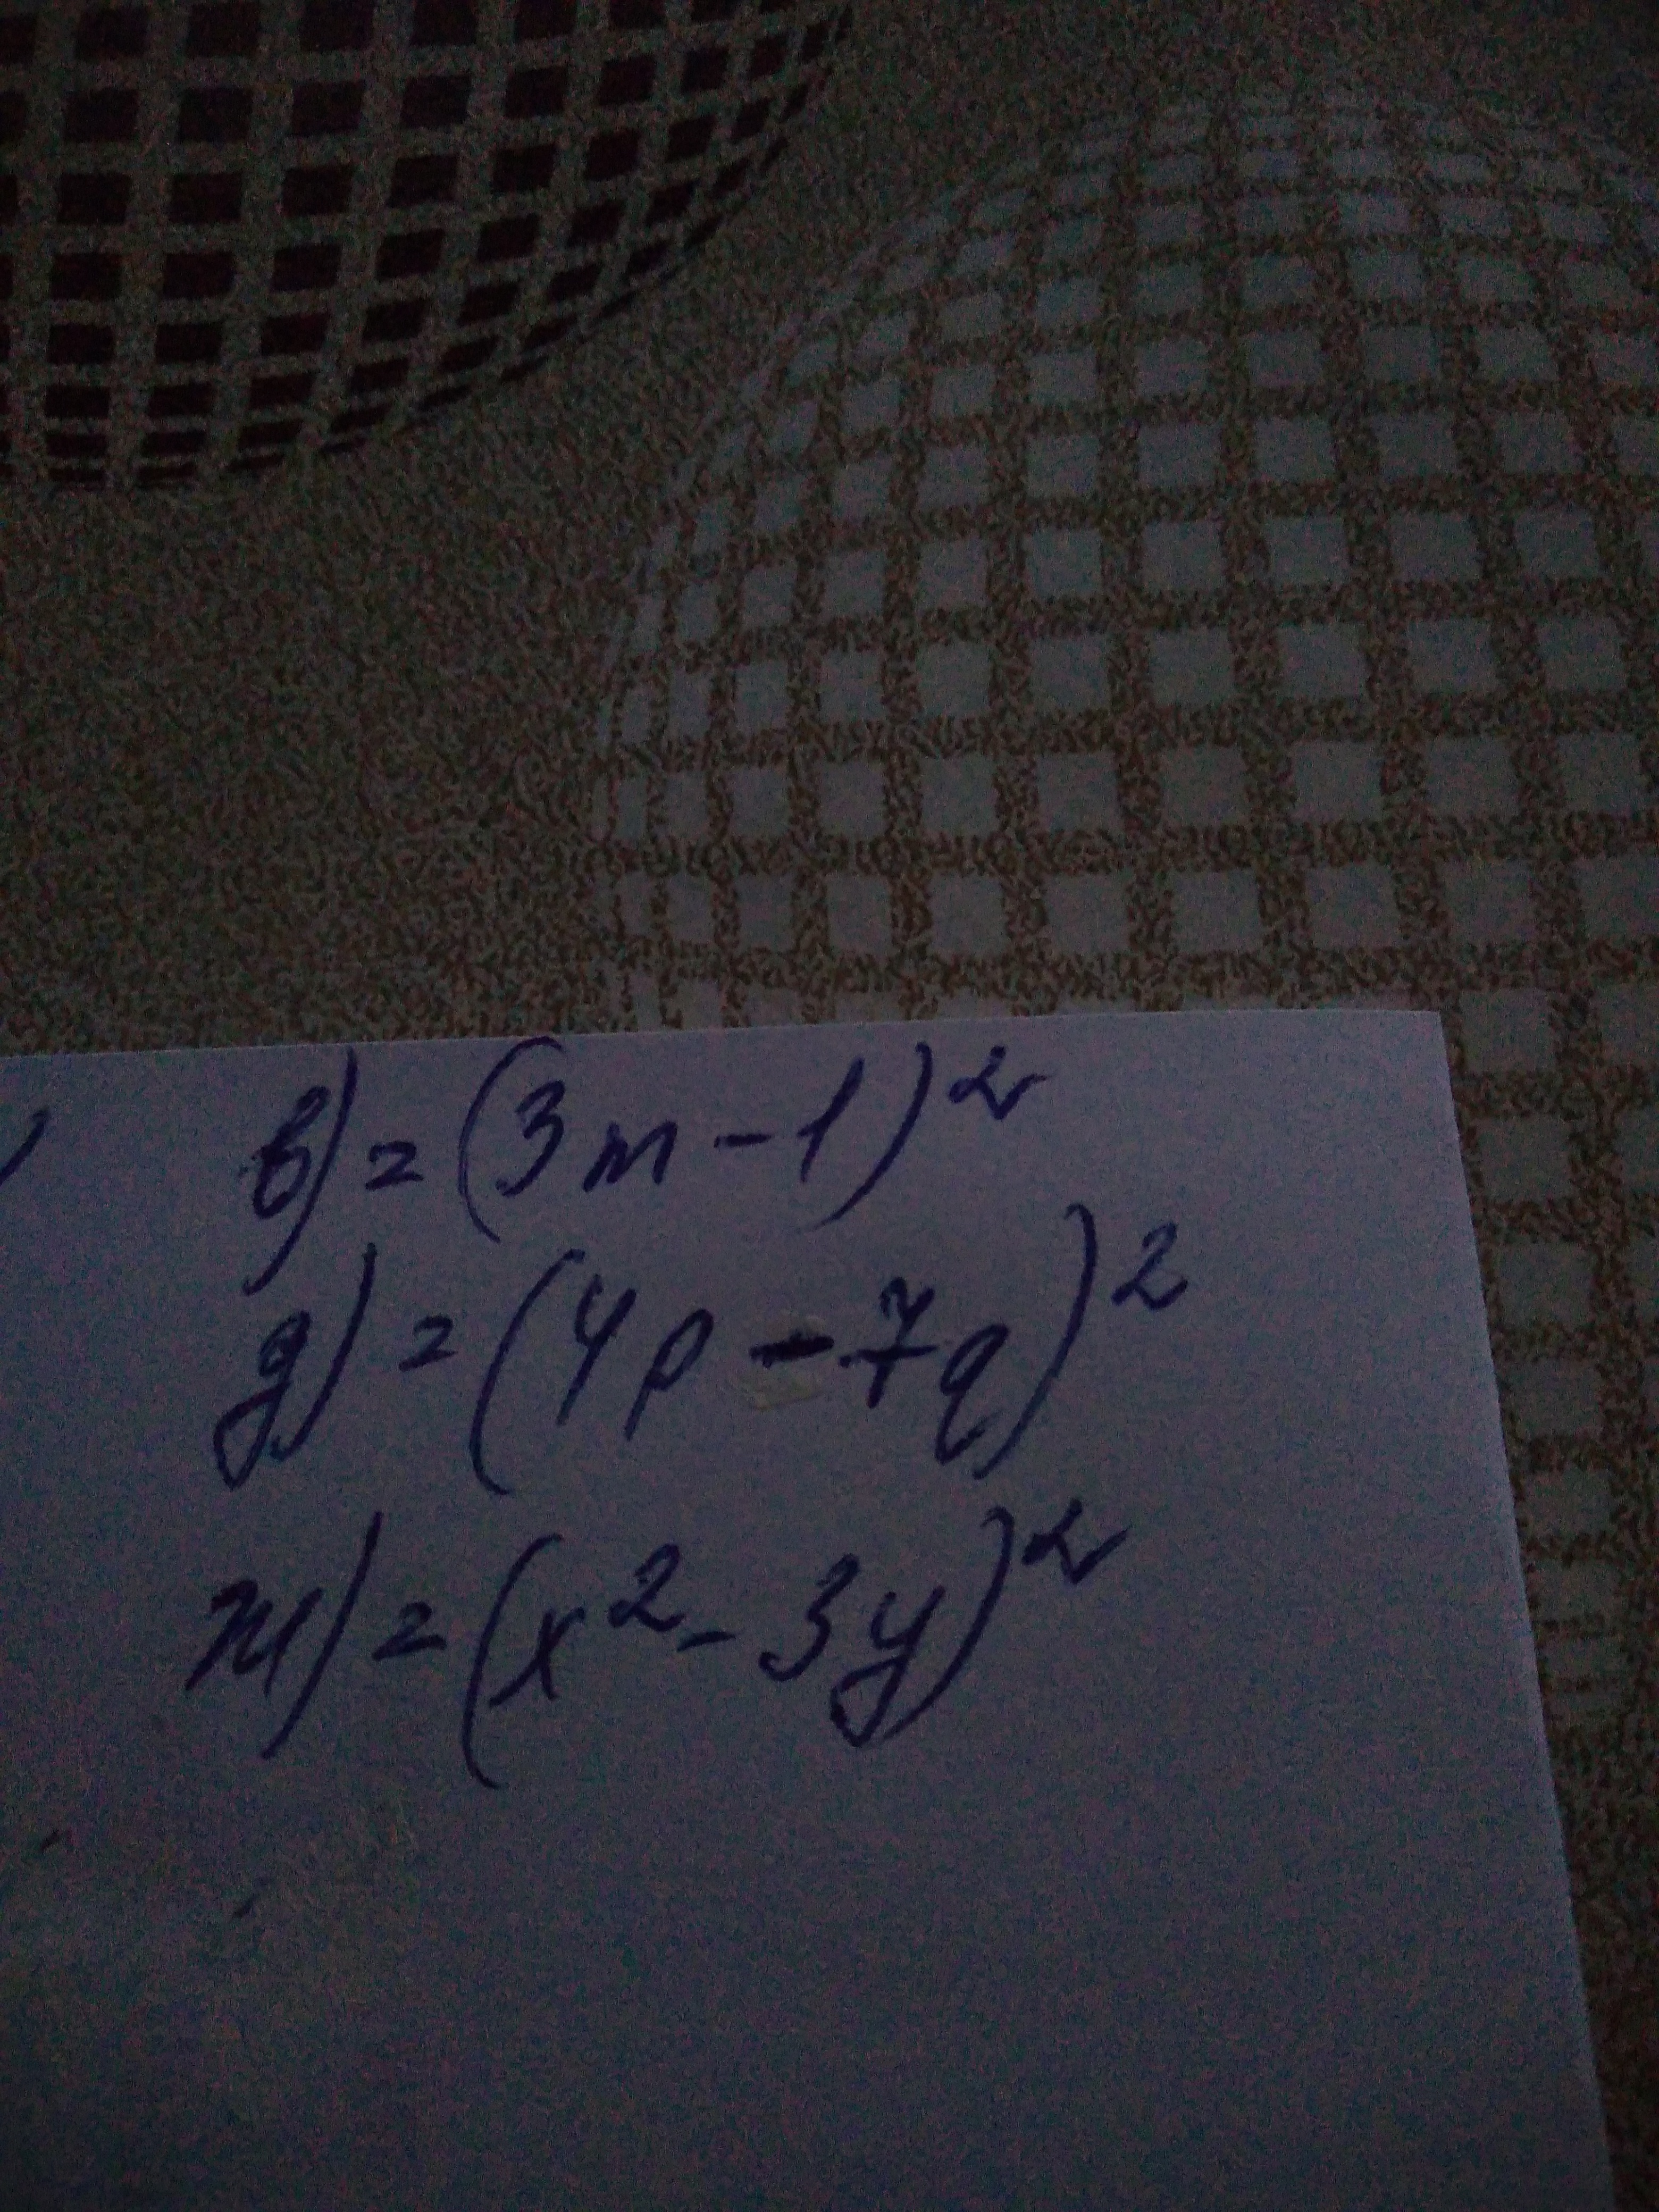 в) = (3m - 1)²
д) = (4p - 7q)²
ж) = (x² - 3y)²